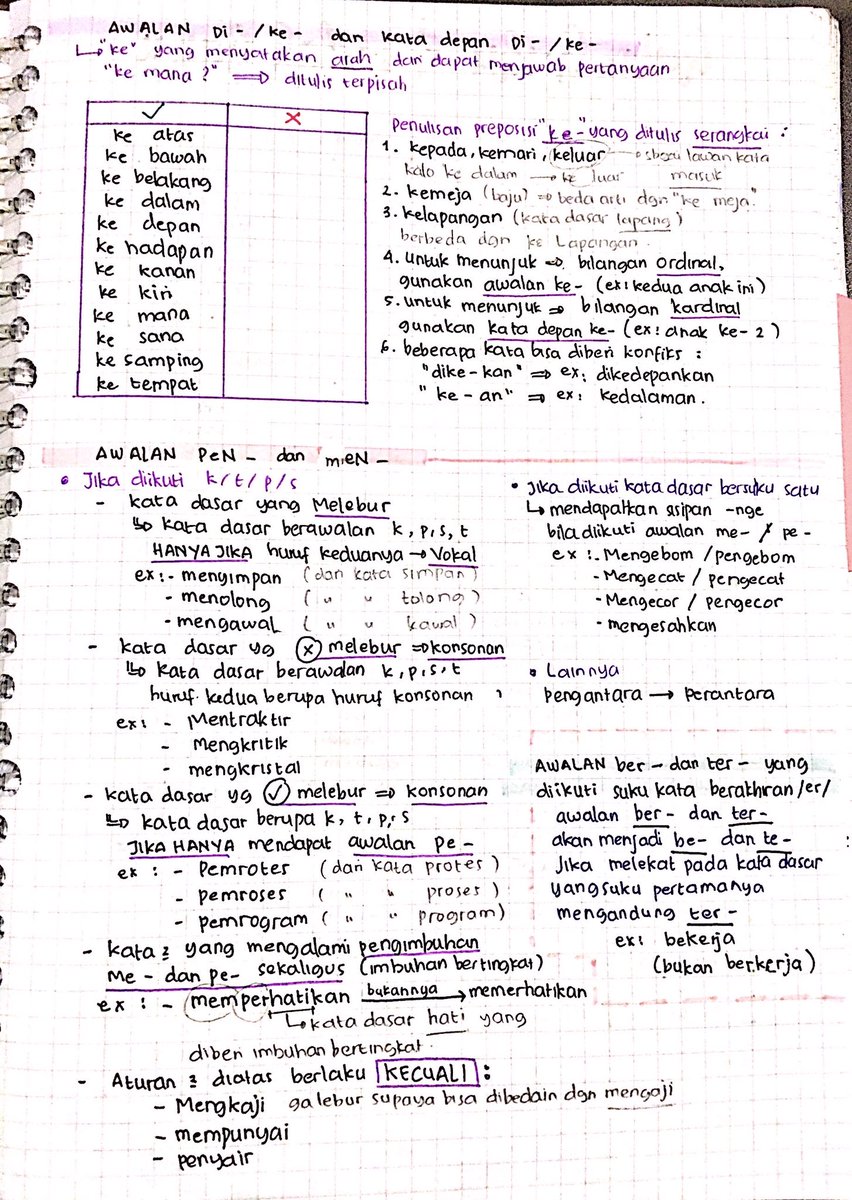 AWALAN Di - / ke - dan kata depan Di - / ke -
↳ "ke" yang menyatakan arah dan dapat menjawab pertanyaan
"ke mana?" ⟹ ditulis terpisah
✓ ✗
ke atas
ke bawah
ke belakang
ke dalam
ke depan
ke hadapan
ke kanan
ke kiri
ke mana
ke sana
ke samping
ke tempat
Penulisan preposisi "ke-" yang ditulis serangkai :
1. kepada, kemari, keluar → sbgai lawan kata
kalo ke dalam → ke luar masuk
2. kemeja (baju) ⇒ beda arti dgn "ke meja"
3. kelapangan (kata dasar lapang)
berbeda dgn ke Lapangan.
4. untuk menunjuk ⇒ bilangan ordinal,
gunakan awalan ke- (ex: kedua anak ini)
5. untuk menunjuk ⇒ bilangan kardinal
gunakan kata depan ke- (ex: anak ke-2)
6. beberapa kata bisa diberi konfiks :
"dike-kan" ⇒ ex: dikedepankan
"ke-an" ⇒ ex: kedalaman.
AWALAN PeN - dan meN -
• Jika diikuti k/t/p/s
- kata dasar yang Melebur
↳ kata dasar berawalan k, p, s, t
HANYA JIKA huruf keduanya → Vokal
ex: - menyimpan (dari kata simpan)
- menolong ( " " tolong)
- mengawal ( " " kawal)
- kata dasar yg ✗ melebur ⇒ konsonan
↳ kata dasar berawalan k, p, s, t
huruf kedua berupa huruf konsonan
ex: - Mentraktir
- Mengkritik
- mengkristal
- kata dasar yg ✓ melebur ⇒ konsonan
↳ kata dasar berupa k, t, p, s
JIKA HANYA mendapat awalan pe-
ex : - Pemrotes (dari kata protes)
- pemroses ( " " proses)
- pemrogram ( " " program)
- kata2 yang mengalami pengimbuhan
Me- dan pe- sekaligus (imbuhan bertingkat)
ex : - memperhatikan bukannya → memerhatikan
↳ kata dasar hati yang
diberi imbuhan bertingkat.
- Aturan2 diatas berlaku KECUALI :
- Mengkaji galebur supaya bisa dibedain dgn mengaji
- mempunyai
- penyair
• Jika diikuti kata dasar bersuku satu
↳ mendapatkan sisipan -nge
bila diikuti awalan me- / pe-
ex : - Mengebom / pengebom
- Mengecat / pengecat
- Mengecor / pengecor
- mengesahkan
• Lainnya
pengantara → perantara
AWALAN ber- dan ter- yang
diikuti suku kata berakhiran /er/
awalan ber- dan ter-
akan menjadi be- dan te-
Jika melekat pada kata dasar
yang suku pertamanya
mengandung ter-
ex: bekerja
(bukan berkerja)